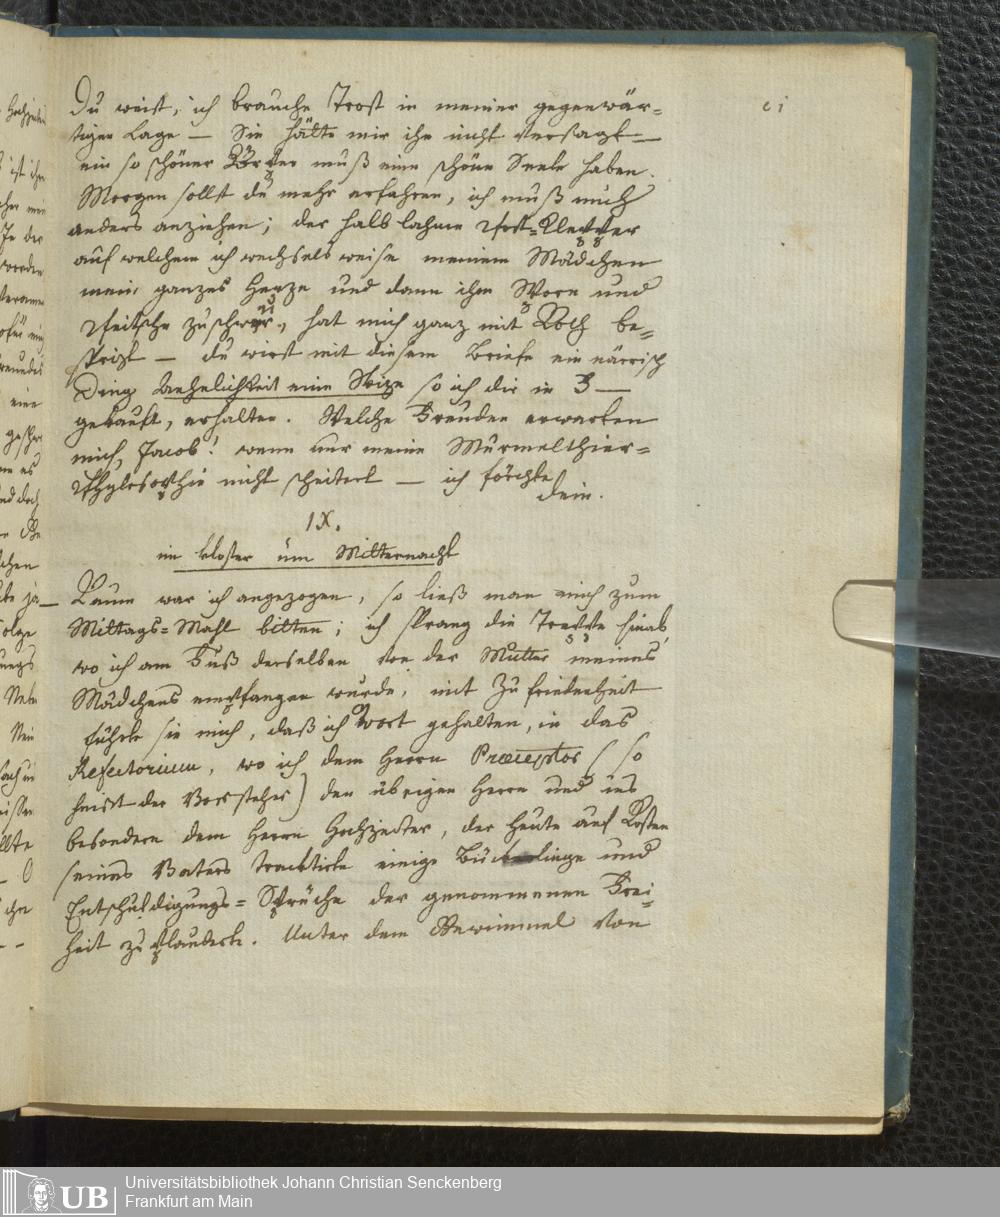 Du weist, ich brauche Trost in meiner gegenwär-
tigen Lage — Sie hätte mir ihn nicht versagt —
ein so schöner Körper muß eine schöne Seele haben.
Morgen sollst du mehr erfahren, ich muß mich
anders anziehen; der halb lahme Post-Klepper
auf welchem ich wechselsweise meinem Mädchen
mein ganzes Herze und dann ihm Sporn und
Peitsche zuschwur, hat mich ganz mit Koth be-
sprizt — du wirst mit diesem Briefe ein närrisch
Ding Aehnlichkeit einer Skize so ich dir in F —
gekauft, erhalten. Welche Freuden erwarten
mich, Jacob! wenn nur meine Murmelthier-
Phylosophie nicht scheitert — ich förchte
dein.
IX.
im Kloster um Mitternacht
Kaum war ich angezogen, so ließ man mich zum
Mittags-Mahl bitten; ich sprang die Treppe hinab,
wo ich am Fuß derselben von der Mutter meines
Mädchens empfangen wurde, mit Zufriedenheit
führte sie mich, daß ich Wort gehalten, in das
Refectorium, wo ich dem Herrn Præceptor (so
heisst der Vorsteher) den übrigen Herrn und ins
besondern dem Herrn Hochzeiter, der heute auf Kosten
seines Vaters tracktirte einige Bücklinge und
Entschuldigungs-Sprüche der genommenen Frei-
heit zu plauderte. Unter dem Gewimmel von
Universitätsbibliothek Johann Christian Senckenberg
UB
Frankfurt am Main